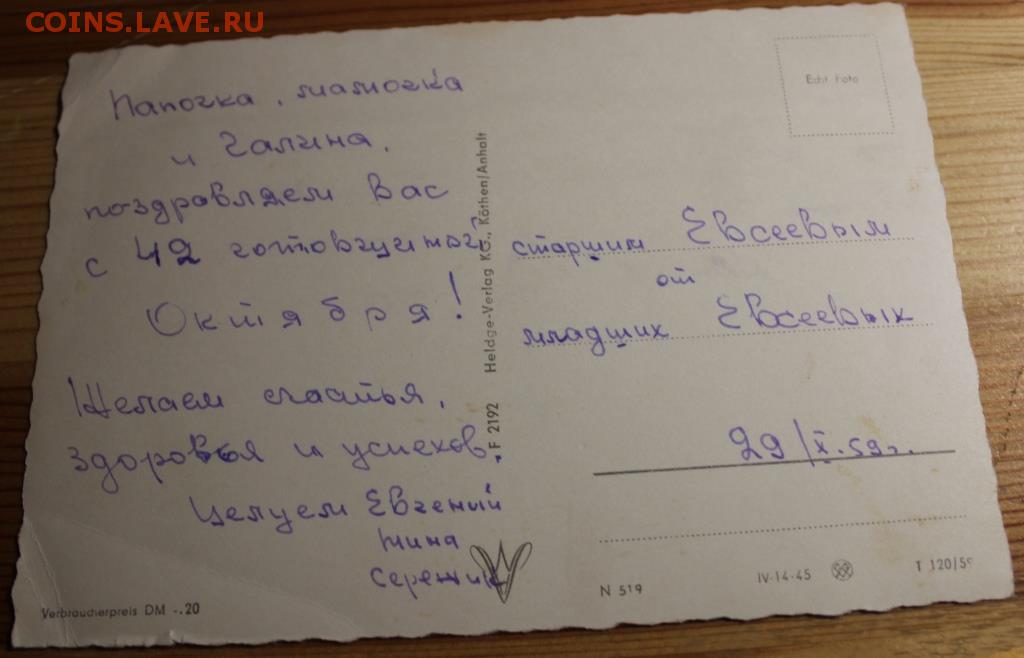 COINS.LAVE.RU
Папочка, мамочка
и Галина,
поздравляем Вас
с 42 готовщиной
Октября!
Желаем счастья,
здоровья и успехов.
Целуем Евгений
Нина
Сережик
Verbraucherpreis DM -.20
F 2192 Heldge-Verlag KG., Köthen/Anhalt
Echt Foto
старшим Евсеевым
от
младших Евсеевых
29/X.59г.
N 519
IV-14-45
T 120/59